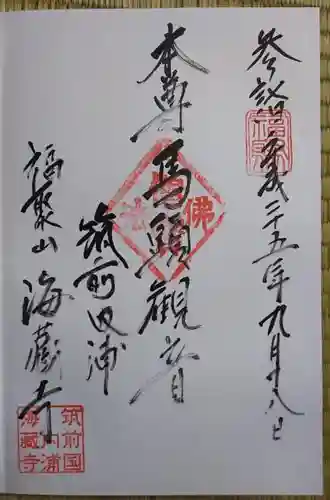 参詣 平成二十五年九月十八日
本尊 馬頭観音
筑前田浦
福聚山 海蔵寺
筑前国
内浦
海蔵寺